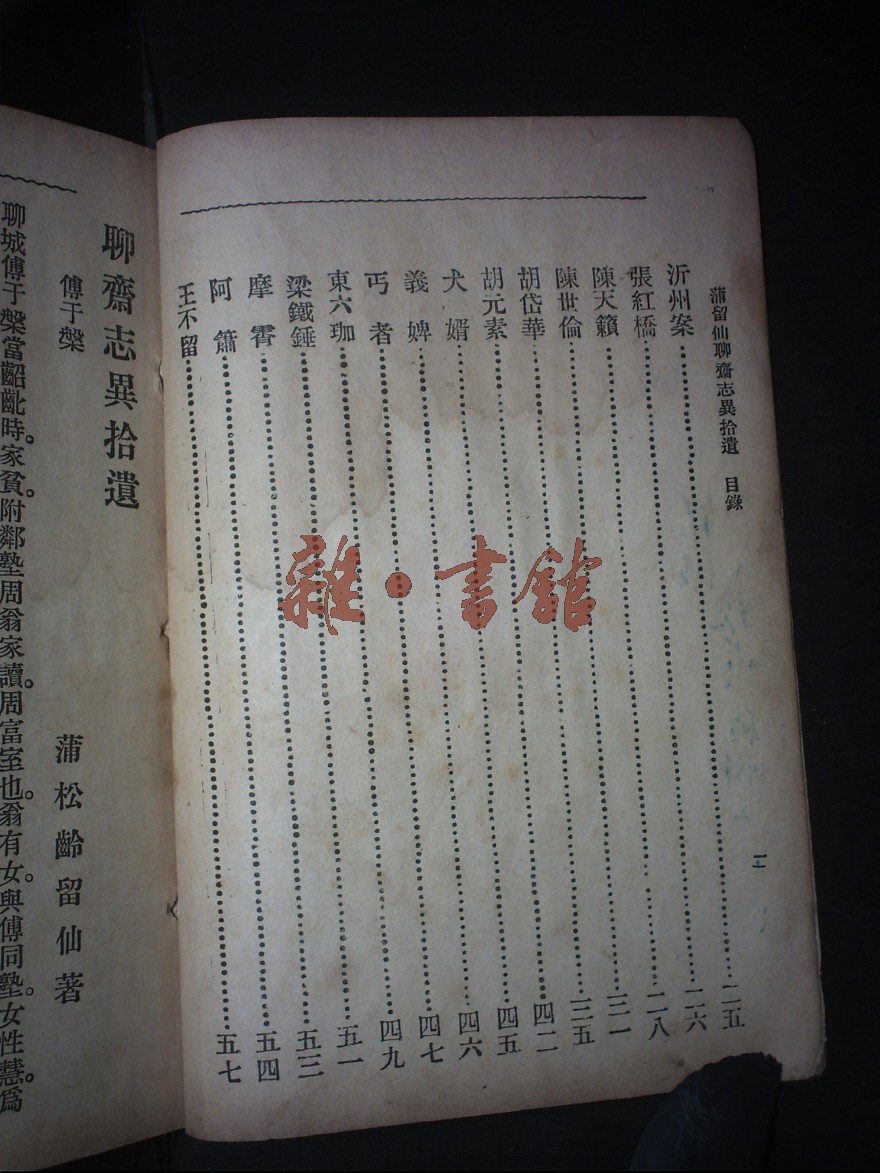 蒲留仙聊齋志異拾遺 目錄
沂州案……二五
張紅橋……二六
陳天籟……二八
陳世倫……三一
胡岱華……三五
胡元素……四二
犬婿……四五
義婢……四六
丐者……四七
東六珈……四九
梁鐵錘……五一
摩霄……五三
阿簫……五四
王不留……五七
聊齋志異拾遺
傅于槃 蒲松齡留仙著
聊城傅于槃當齠齔時。家貧。附鄰塾周翁家讀。周富室也。翁有女。與傅同塾。女性慧。爲
雜·書館